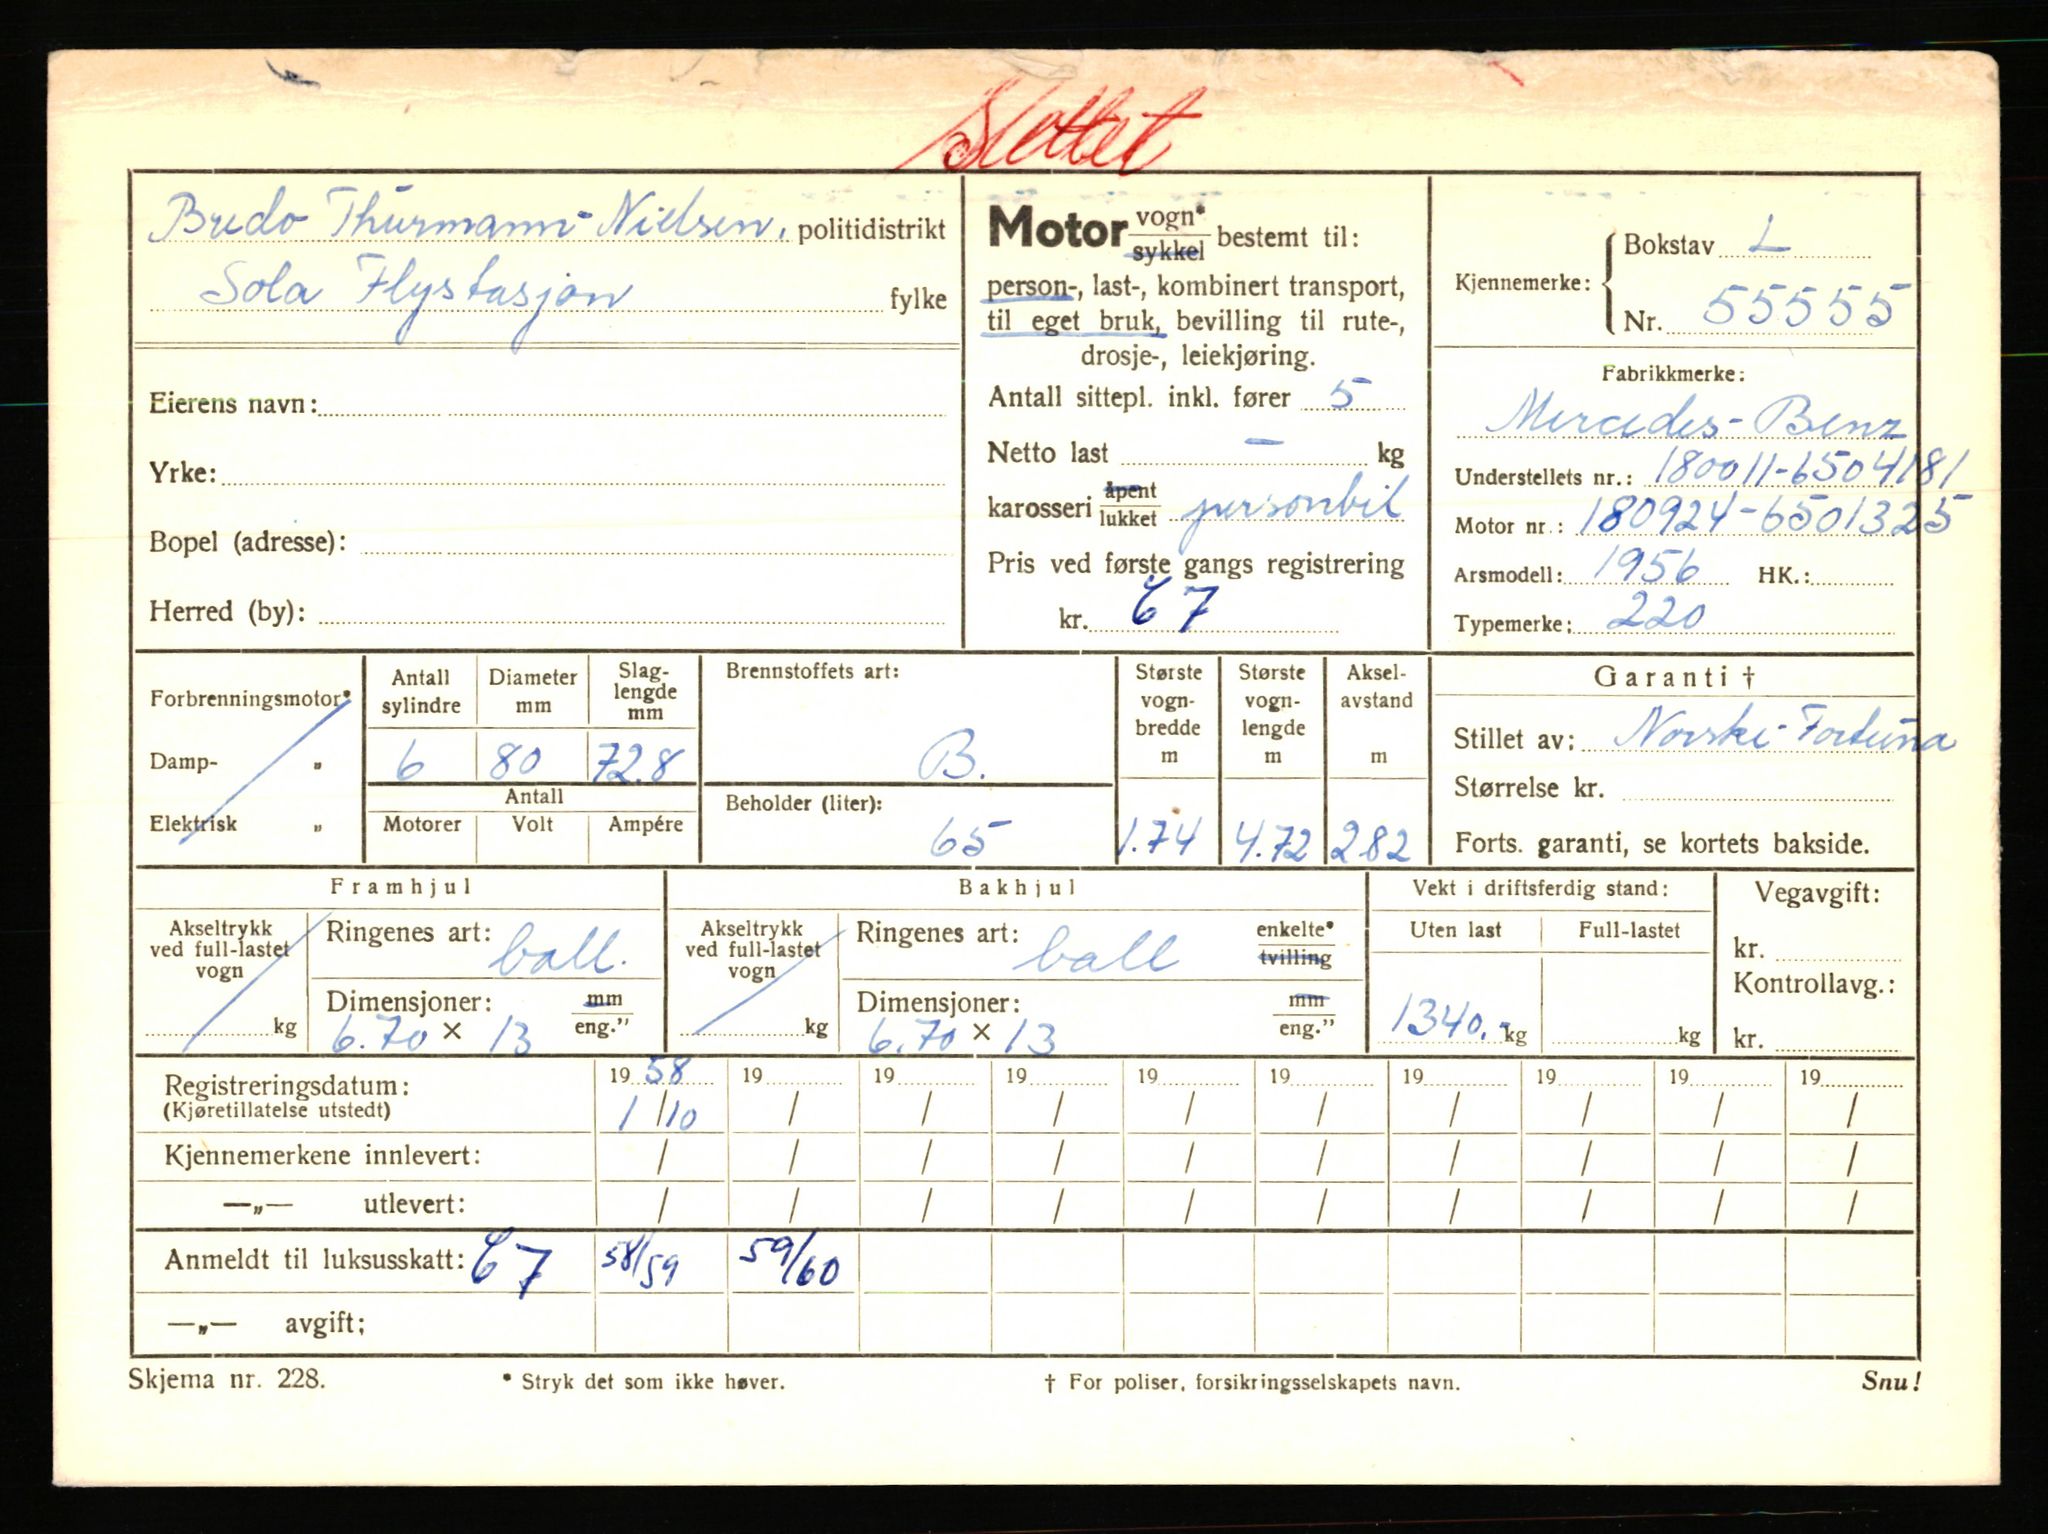 Slettet
Bredo Thurmann-Nielsen, politidistrikt
Sola Flystasjon fylke
Eierens navn:
Yrke:
Bopel (adresse):
Herred (by):
Motor vogn* sykkel bestemt til:
person-, last-, kombinert transport,
til eget bruk, bevilling til rute-,
drosje-, leiekjøring.
Antall sittepl. inkl. fører 5
Netto last — kg
karosseri åpent lukket personbil
Pris ved første gangs registrering
kr. 67
Kjennemerke: Bokstav L
Nr. 55555
Fabrikkmerke:
Mercedes-Benz
Understellets nr.: 180011-6504181
Motor nr.: 180924-6501325
Arsmodell: 1956 HK.:
Typemerke: 220
Forbrenningsmotor*
Damp- „
Elektrisk „
Antall sylindre 6
Diameter mm 80
Slag-lengde mm 72.8
Antall
Motorer Volt Ampére
Brennstoffets art:
B.
Beholder (liter):
65
Største vogn-bredde m 1.74
Største vogn-lengde m 4.72
Aksel-avstand m 282
Garanti †
Stillet av: Norske-Fortuna
Størrelse kr.
Forts. garanti, se kortets bakside.
Framhjul
Akseltrykk ved full-lastet vogn kg
Ringenes art: ball.
Dimensjoner: mm eng."
6.70 × 13
Bakhjul
Akseltrykk ved full-lastet vogn kg
Ringenes art: ball enkelte* tvilling
Dimensjoner: mm eng."
6.70 × 13
Vekt i driftsferdig stand:
Uten last Full-lastet
1340.- kg kg
Vegavgift:
kr.
Kontrollavg.:
kr.
Registreringsdatum: 19 58 19 19 19 19 19 19 19 19 19
(Kjøretillatelse utstedt) 1/10 / / / / / / / / /
Kjennemerkene innlevert: / / / / / / / / / /
—„— utlevert: / / / / / / / / / /
Anmeldt til luksusskatt: 67 58/59 59/60
—„— avgift;
Skjema nr. 228. * Stryk det som ikke høver. † For poliser, forsikringsselskapets navn. Snu!